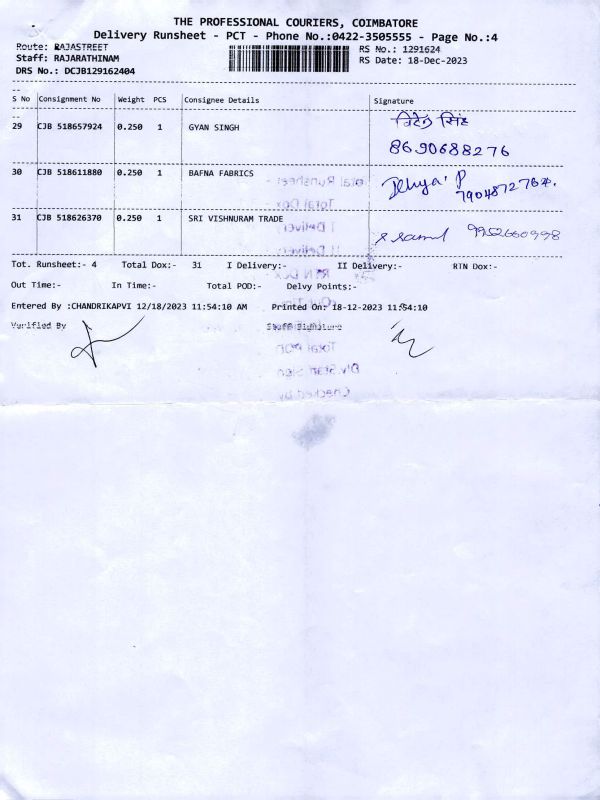 THE PROFESSIONAL COURIERS, COIMBATORE
Delivery Runsheet - PCT - Phone No.:0422-3505555 - Page No.:4
Route: RAJASTREET
RS No.: 1291624
Staff: RAJARATHINAM
RS Date: 18-Dec-2023
DRS No.: DCJB129162404
S No Consignment No Weight PCS Consignee Details Signature
29 CJB 518657924 0.250 1 GYAN SINGH सिंह
8690688276
30 CJB 518611880 0.250 1 BAFNA FABRICS P
31 CJB 518626370 0.250 1 SRI VISHNURAM TRADE
9952660998
Tot. Runsheet:- 4 Total Dox:- 31 I Delivery:- II Delivery:- RTN Dox:-
Out Time:- In Time:- Total POD:- Delvy Points:-
Entered By :CHANDRIKAPVI 12/18/2023 11:54:10 AM Printed On: 18-12-2023 11:54:10
Verified By Staff Signature